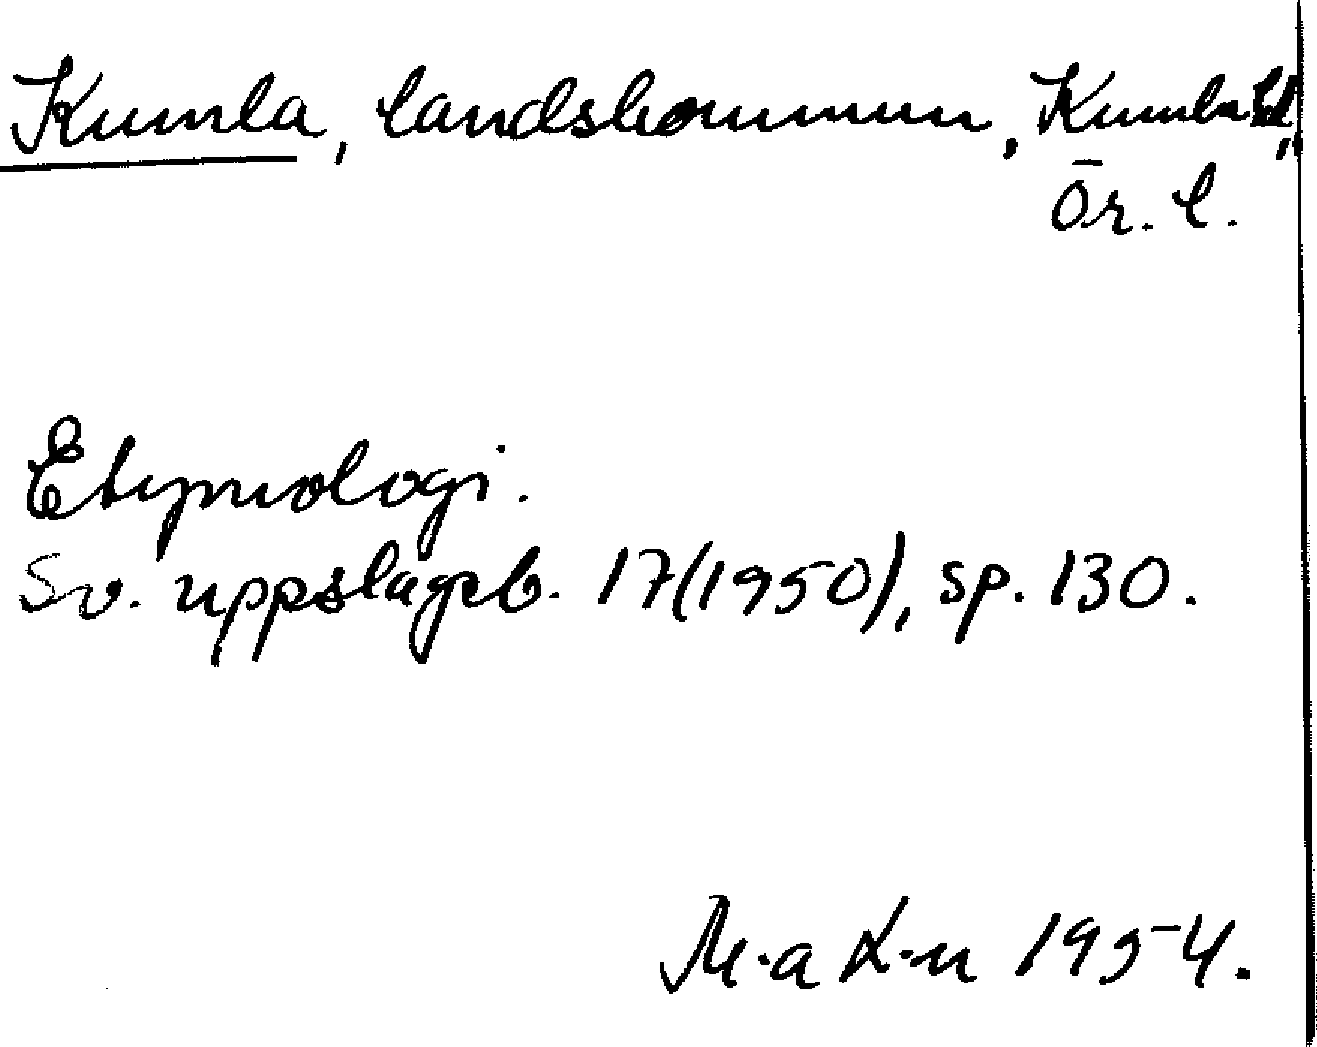 Kumla, landskommun, Kumla hd,
Ör. l.
Etymologi.
Sv. uppslagsb. 17(1950), sp. 130.
M-a K-n 1954.